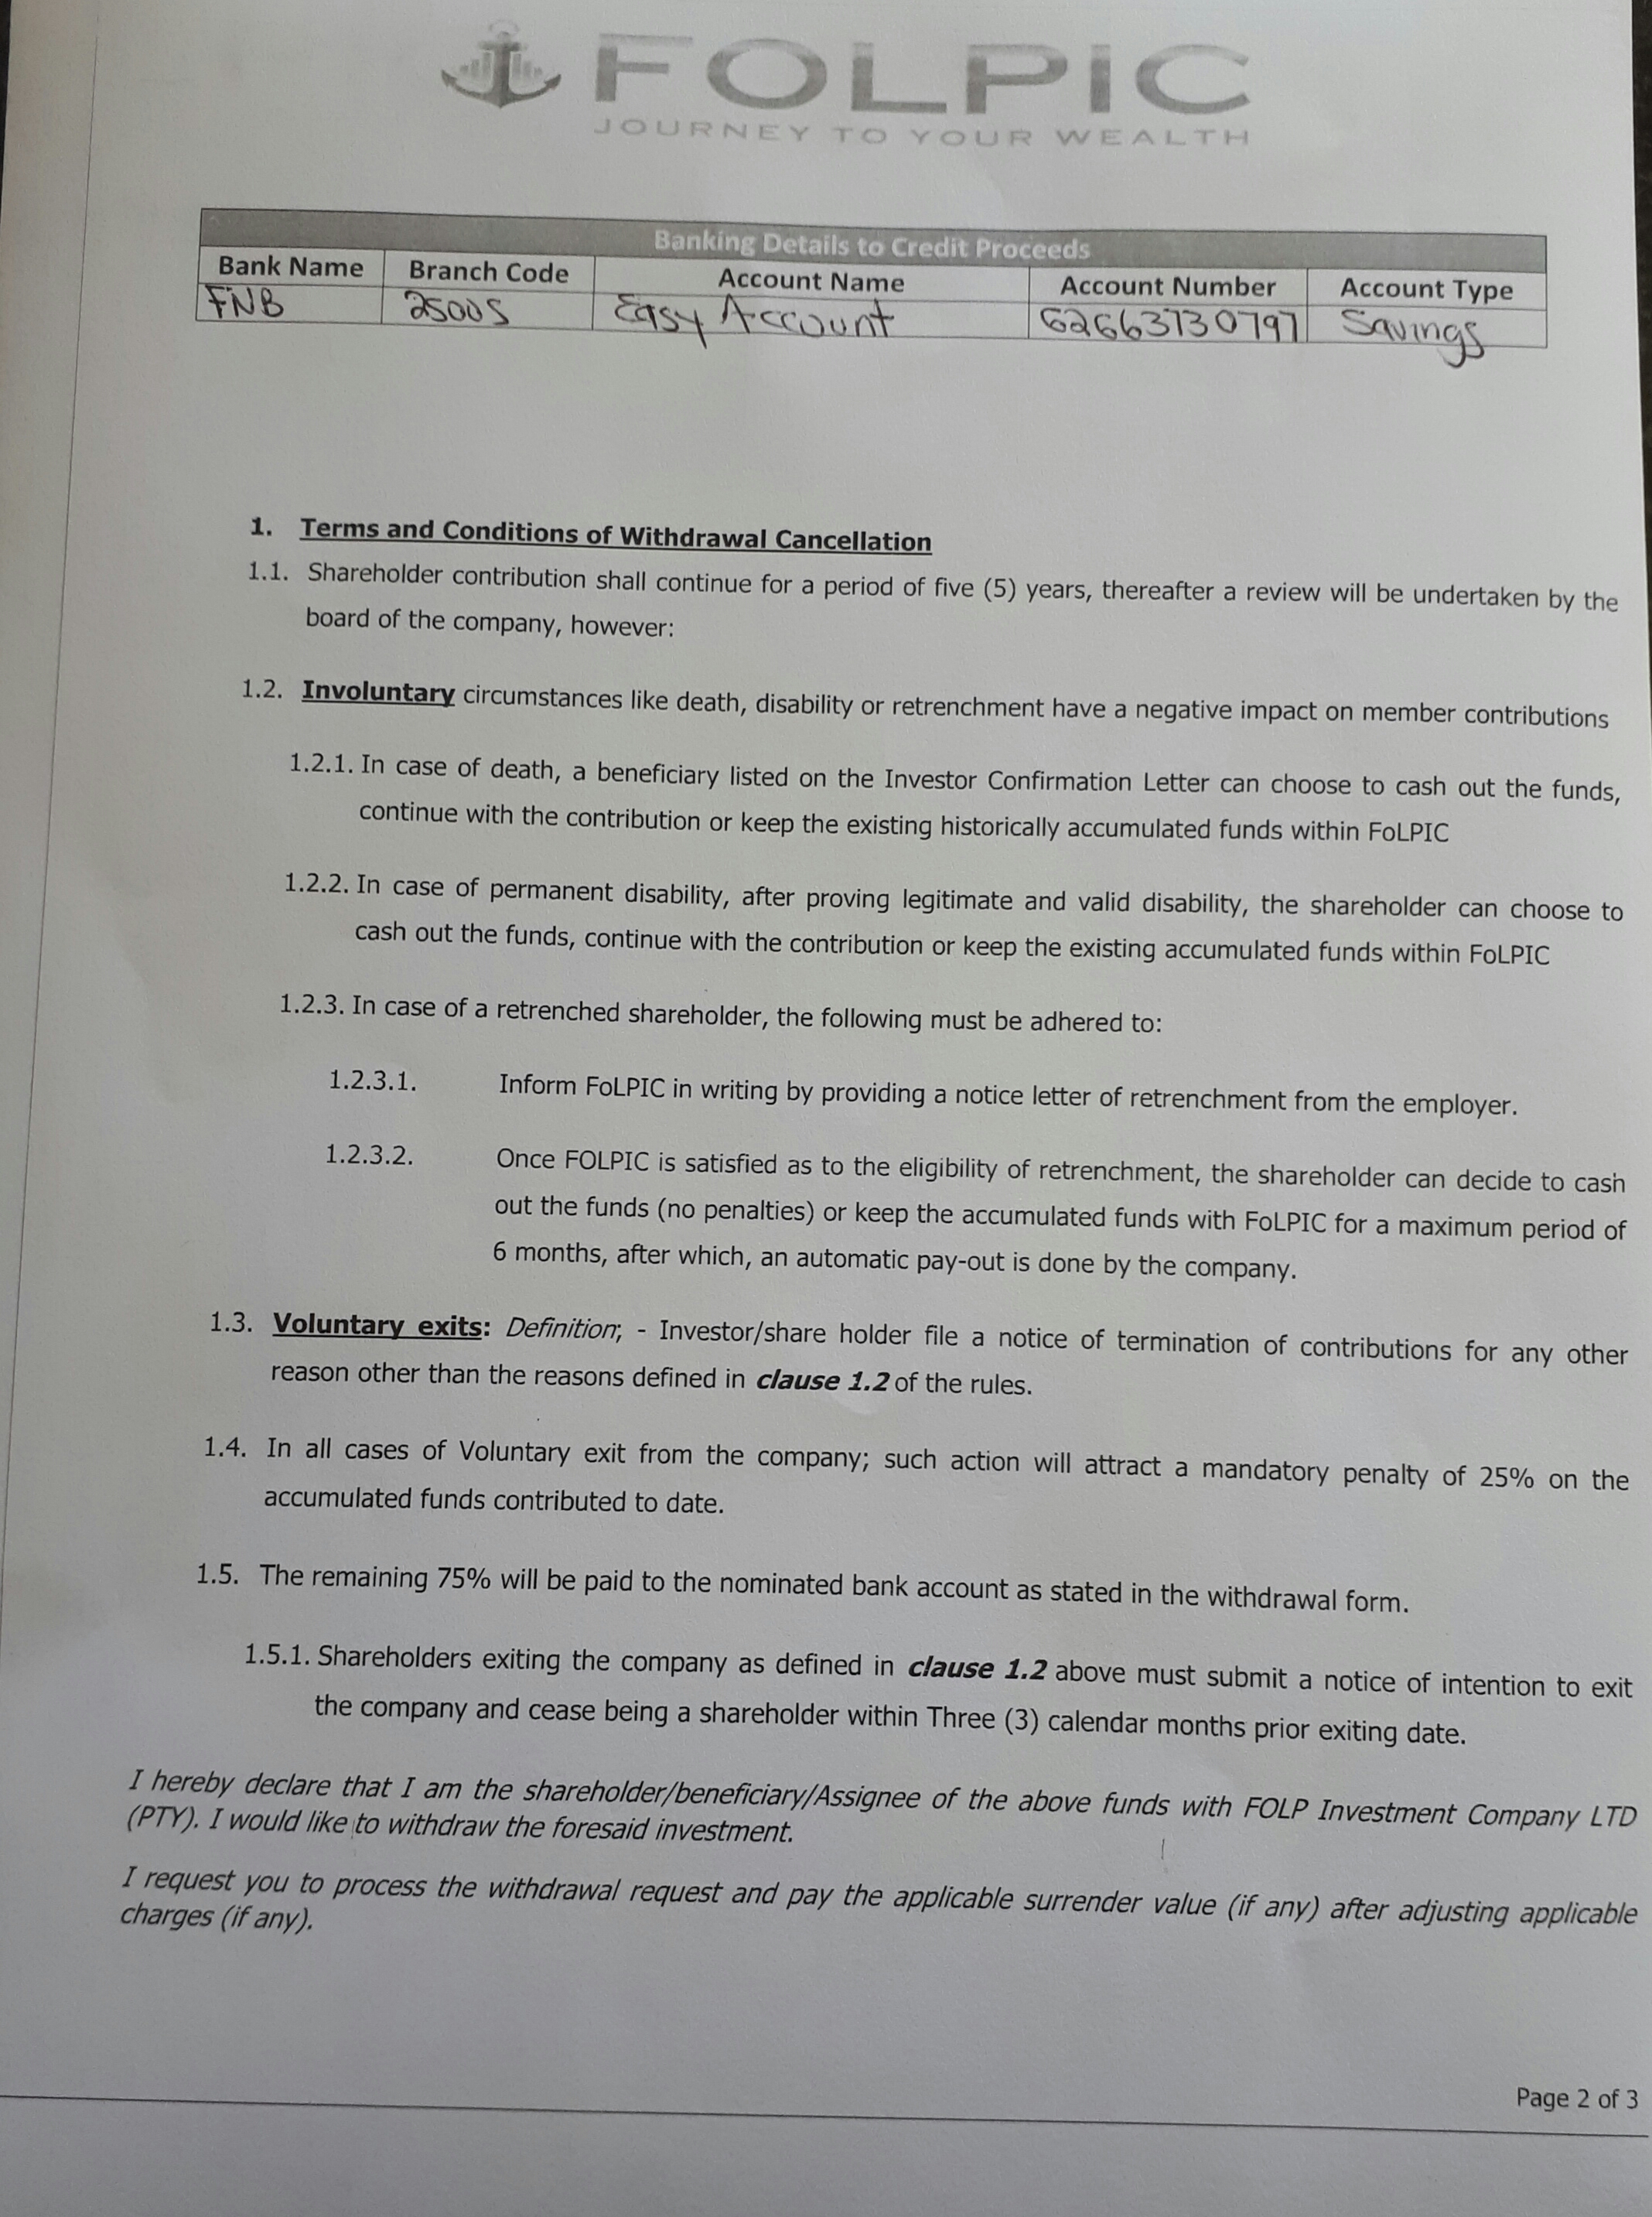 FOLPIC
JOURNEY TO YOUR WEALTH
Banking Details to Credit Proceeds
Bank Name Branch Code Account Name Account Number Account Type
FNB 25005 Easy Account 62663730797 Savings
1. Terms and Conditions of Withdrawal Cancellation
1.1. Shareholder contribution shall continue for a period of five (5) years, thereafter a review will be undertaken by the
board of the company, however:
1.2. Involuntary circumstances like death, disability or retrenchment have a negative impact on member contributions
1.2.1. In case of death, a beneficiary listed on the Investor Confirmation Letter can choose to cash out the funds,
continue with the contribution or keep the existing historically accumulated funds within FoLPIC
1.2.2. In case of permanent disability, after proving legitimate and valid disability, the shareholder can choose to
cash out the funds, continue with the contribution or keep the existing accumulated funds within FoLPIC
1.2.3. In case of a retrenched shareholder, the following must be adhered to:
1.2.3.1. Inform FoLPIC in writing by providing a notice letter of retrenchment from the employer.
1.2.3.2. Once FOLPIC is satisfied as to the eligibility of retrenchment, the shareholder can decide to cash
out the funds (no penalties) or keep the accumulated funds with FoLPIC for a maximum period of
6 months, after which, an automatic pay-out is done by the company.
1.3. Voluntary exits: Definition; - Investor/share holder file a notice of termination of contributions for any other
reason other than the reasons defined in clause 1.2 of the rules.
1.4. In all cases of Voluntary exit from the company; such action will attract a mandatory penalty of 25% on the
accumulated funds contributed to date.
1.5. The remaining 75% will be paid to the nominated bank account as stated in the withdrawal form.
1.5.1. Shareholders exiting the company as defined in clause 1.2 above must submit a notice of intention to exit
the company and cease being a shareholder within Three (3) calendar months prior exiting date.
I hereby declare that I am the shareholder/beneficiary/Assignee of the above funds with FOLP Investment Company LTD
(PTY). I would like to withdraw the foresaid investment.
I request you to process the withdrawal request and pay the applicable surrender value (if any) after adjusting applicable
charges (if any).
Page 2 of 3